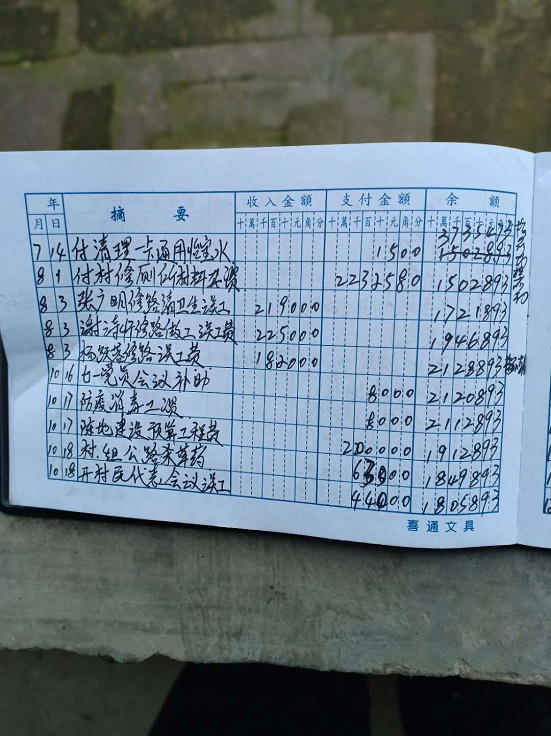 年 摘要 收入金额 支付金额 余额
月 日 十萬千百十元角分 十萬千百十元角分 十萬千百十元角分
7 14 付清理 1500 3735493
8 1 付村修厕所材料 2232580 1502893
8 3 张广明修路消卫生误工 219000 1721893
8 3 修路做工误工费 225000 1946893
8 3 修路误工费 182000 2128893
10 16 七一党员会议补助 8000 2120893
10 17 防疫消毒工资 8000 2112893
10 17 陆地建设预算工程费 200000 1912893
10 18 村.组公路 63000 1849893
10 18 开村民代表会议误工 44000 1805893
喜通文具